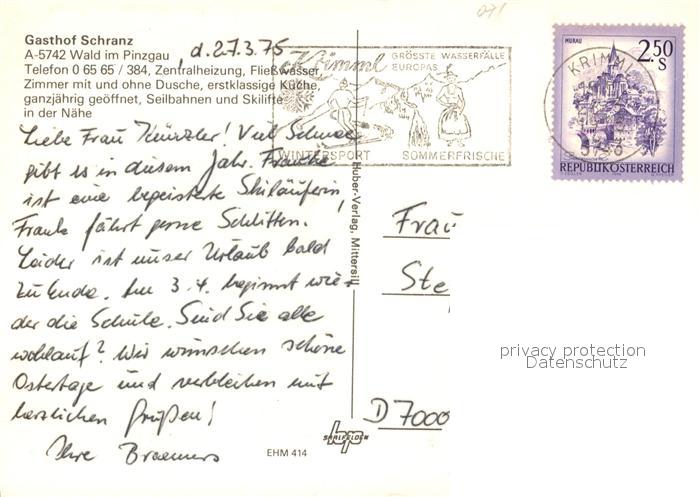 071
Gasthof Schranz
A-5742 Wald im Pinzgau, d. 27.3.75
Telefon 0 65 65 / 384, Zentralheizung, Fließwasser,
Zimmer mit und ohne Dusche, erstklassige Küche,
ganzjährig geöffnet, Seilbahnen und Skilifte
in der Nähe
Liebe Frau Künzler! Viel Schnee
gibt es in diesem Jahr. Frauke
ist eine begeisterte Skiläuferin,
Frank fährt gerne Schlitten.
Leider ist unser Urlaub bald
zu Ende. Am 3.4. beginnt wie-
der die Schule. Sind Sie alle
wohlauf? Wir wünschen schöne
Ostertage und verbleiben mit
herzlichen Grüßen!
Ihre
Krimml
GRÖSSTE WASSERFÄLLE
EUROPAS
WINTERSPORT SOMMERFRISCHE
MURAU
2.50
S
KRIMML
REPUBLIK ÖSTERREICH
Huber-Verlag, Mittersill
Frau
Ste
D 7000
privacy protection
Datenschutz
hp
SAALFELDEN
EHM 414